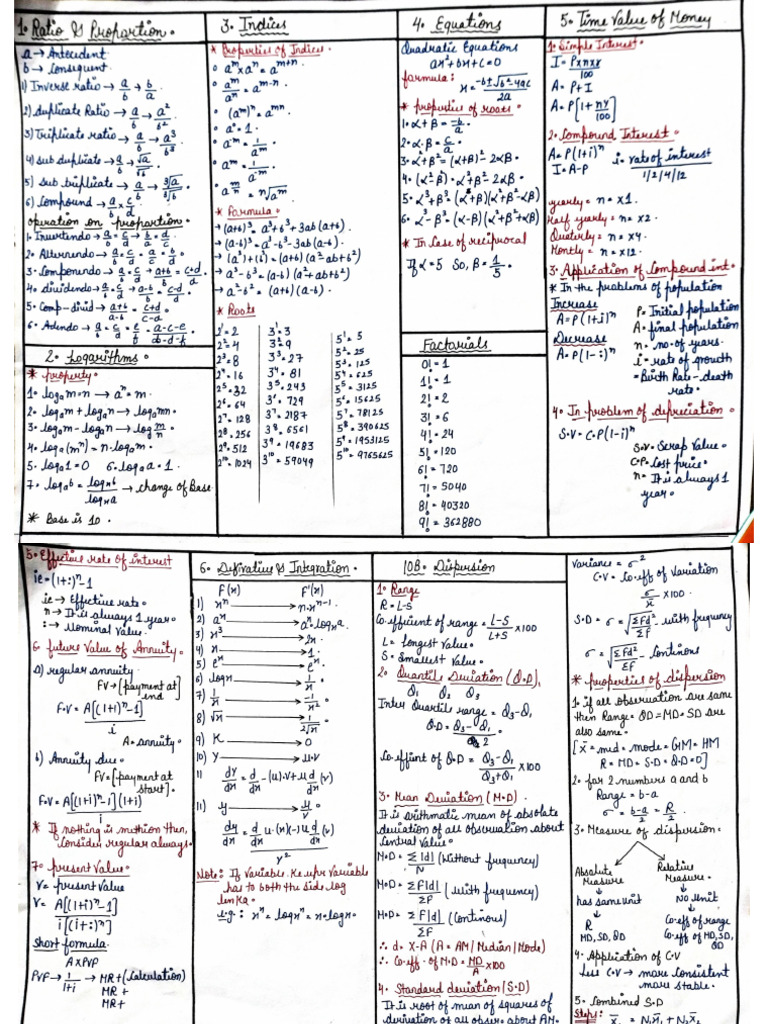 1. Ratio & Proportion.
a → Antecedent
b → Consequent
1) Inverse ratio → a/b → b/a
2) duplicate Ratio → a/b → a²/b²
3) Triplicate ratio → a/b → a³/b³
4) sub duplicate → a/b → √a/√b
5) Sub triplicate → a/b → ³√a/³√b
6) Compound → a/b × c/d
operation on proportion.
1. Invertendo → a/b = c/d → b/a = d/c
2. Alternendo → a/b = c/d = a/c = b/d
3. Componendo → a/b = c/d → a+b/b = c+d/d
4. dividendo → a/b = c/d → a-b/b = c-d/d
5. Comp-divid → a+b/a-b = c+d/c-d
2. Logarithms.
* property.
2. logₐm + logₐn → logₐmn.
3. logₐm - logₐn → log m/n
4. logₐ(mⁿ) = n.logₐm.
5. logₐ1 = 0 6. logₐa = 1.
→ change of Base
* Base is 10.
3. Indices
* Properties of Indices.
• aᵐ × aⁿ = aᵐ⁺ⁿ
• aᵐ/aⁿ = aᵐ⁻ⁿ
• (aᵐ)ⁿ = aᵐⁿ
• a° = 1.
* formula.
→ (a+b)³ = a³+b³+3ab(a+b).
→ (a-b)³ = a³-b³-3ab(a-b).
→ a³-b³ = (a-b)(a²+ab+b²)
→ a²-b² = (a+b)(a-b).
* Roots
2¹ = 2
2² = 4
2³ = 8
2⁴ = 16
2⁵ = 32
2⁶ = 64
2⁷ = 128
2⁸ = 256
2⁹ = 512
2¹⁰ = 1024
3¹ = 3
3² = 9
3³ = 27
3⁴ = 81
3⁵ = 243
3⁶ = 729
3⁷ = 2187
3⁸ = 6561
3⁹ = 19683
3¹⁰ = 59049
5¹ = 5
5² = 25
5³ = 125
5⁴ = 625
5⁵ = 3125
5⁶ = 15625
5⁷ = 78125
5⁸ = 390625
5⁹ = 1953125
5¹⁰ = 9765625
4. Equations
Quadratic Equations
ax²+bx+c=0
formula:
x = -b±√b²-4ac/2a
* properties of roots.
1. α+β = -b/a
2. αβ = c/a
3. α²+β² = (α+β)² - 2αβ.
* In Case of reciprocal
If α = 5 So, β = 1/5.
Factorials
0! = 1
1! = 1
2! = 2
3! = 6
4! = 24
5! = 120
6! = 720
7! = 5040
8! = 40320
9! = 362880
5. Time Value of Money
1. Simple Interest.
I = P×n×r/100
A = P+I
A = P[1 + nr/100]
2. Compound Interest.
A = P(1+i)ⁿ i = rate of interest/1/2/4/12
I = A-P
yearly = n = x1.
Half yearly = n = x2.
Quaterly = n = x4.
Montly = n = x12.
3. Application of Compound int.
* In the problems of population
Increase P = Initial population
A = P(1+i)ⁿ A = final population
Decrease n = no. of years.
i = rate of growth
= Birth Rate - death
rate.
4. In problem of depreciation
S.V = C.P(1-i)ⁿ
S.V = Scrap Value.
C.P = Cost price.
n = It is always 1
year.
5. Effective rate of interest
ie = (1+i)ⁿ - 1
ie → Effective rate.
n → It is always 1 year.
i → Nominal Value.
6. future Value of Annuity.
a) regular annuity.
FV → [payment at
end]
F.V = A[(1+i)ⁿ-1]/i
A = annuity.
b) Annuity due.
FV = [payment at
start].
F.V = A[(1+i)ⁿ-1](1+i)/i
* If nothing is mention then,
Consider regular always.
7. present Value
V = present Value
Short formula.
A × PVF
PVF → 1/1+i → MR + (Calculation)
MR +
MR +
6. Derivative & Integration.
F(x) F'(x)
1) xⁿ → n.xⁿ⁻¹.
2) aˣ → aˣ logₓa.
3) x² → 2x.
4) x → 1.
5) eˣ → eˣ.
6) logx → 1/x.
7) 1/x → -1/x²
8) √x → 1/2√x
9) K → 0
10) Y → u.v
11) y → u/v
Note: If Variable
has to both the side log
e.g: xⁿ = logxⁿ = n logx.
10B. Dispersion
1. Range
R = L-S
Co efficient of range = L-S/L+S × 100
L = Longest Value.
S = Smallest Value.
2. Quartile Deviation (Q.D).
Q₁ Q₂ Q₃
Inter Quartile range = Q₃-Q₁
Q.D = Q₃-Q₁/2
Co.effient of Q.D = Q₃-Q₁/Q₃+Q₁ × 100
3. Mean Deviation (M.D).
It is arithmatic mean of absolate
deviation of all observation about
Central Value.
M.D = Σ|d|/N (Without frequency)
M.D = ΣF|d|/ΣF (with frequency)
M.D = ΣF|d|/ΣF (Continous)
∴ d = X-A (A = AM / Median / Mode)
∴ Co.eff. of M.D = MD/A × 100
4. Standard deviation (S.D)
It is root of mean of squares of
deviation of all obser. about AM.
Variance = σ²
C.V = Co.eff of Variation
σ/x̄ × 100.
S.D = σ = √ΣFd²/ΣF with frequency
σ = √ΣFd²/ΣF - Continous
* properties of dispersion
1. if all observation are same
then Range = QD = MD = SD are
also same.
[x̄ = med = mode = GM = HM
R = MD = S.D = Q.D = 0]
2. for 2 numbers a and b
Range = b-a
σ = b-a/2 = R/2.
3. Measure of dispersion.
Absolute Relative
Measure Measure.
has same unit No Unit
R Co.eff of range
MD, SD, QD Co.eff of MD, SD, QD
4. Application of C.V
Less C.V → more Consistent
more stable.
5. Combined S.D
Steps: